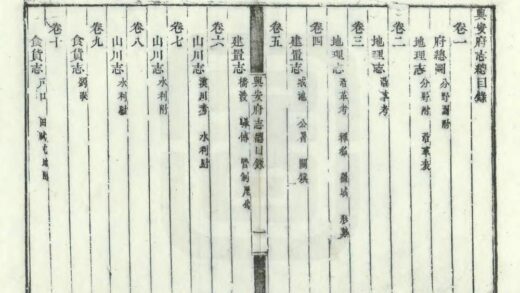 興安府志總目錄
卷一
府總圖 分野圖附
地理志 分野附 沿革表
卷二
地理志 沿革考
卷三
地理志 沿革考 疆域 形勢
卷四
建置志 城池 公署 關鎮
卷五
興安府志總目錄 一
建置志 橋渡
卷六
山川志 漢川考 水利附
卷七
山川志 水利附
卷八
山川志 水利附
卷九
食貨志
卷十
食貨志 戶口 田賦